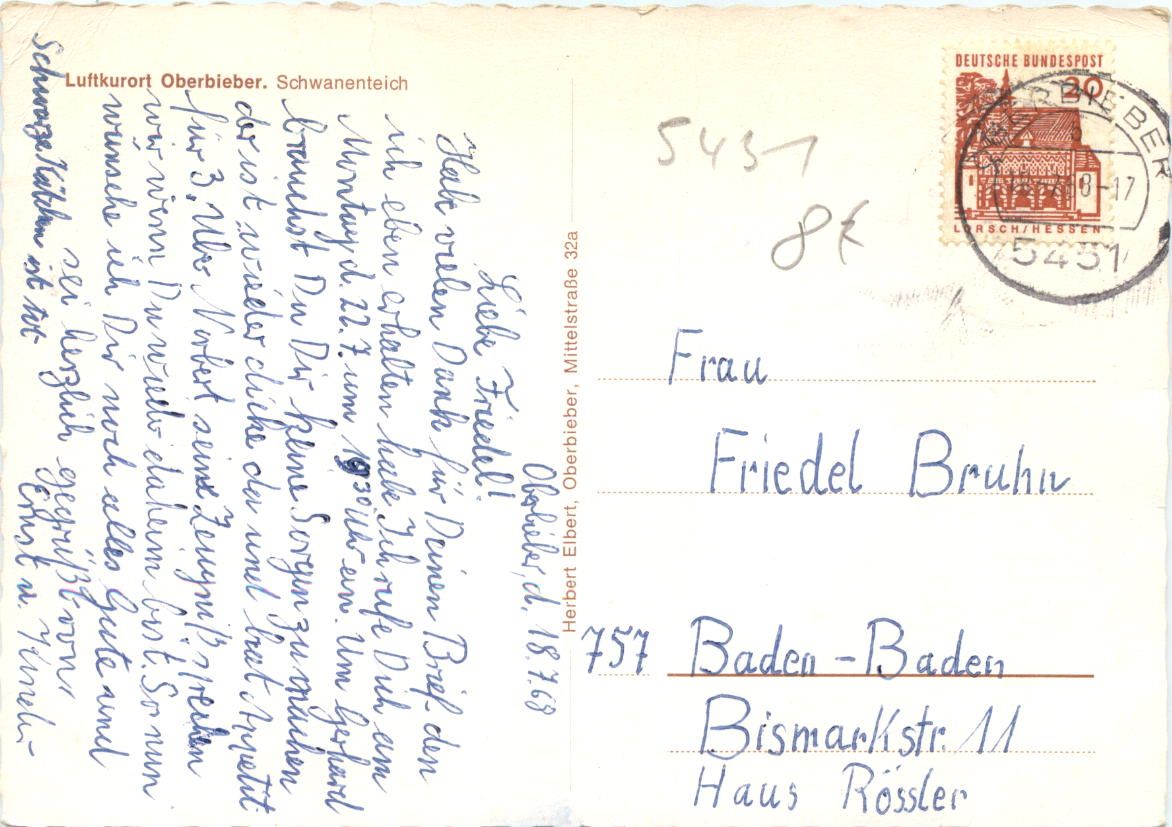 Luftkurort Oberbieber. Schwanenteich
Oberbieber, d. 18.7.68
Liebe Friedel!
Habe vielen Dank für Deinen Brief, den
ich eben erhalten habe. Ich rufe Dich am
Montag d. 22.7. um 1930 Uhr an. Um Gerhard
brauchst Du Dir keine Sorgen zu machen
der ist wieder dicke da und hat Appetit
für 3. Über Norbert seine Zeugniß sprechen
wir wenn Du wieder daheim bist. So nun
wünsche ich Dir noch alles Gute und
sei herzlich gegrüßt von
Ernst u.
Schwarze Kätzchen ist tot
Herbert Elbert, Oberbieber, Mittelstraße 32a
5451
8€
DEUTSCHE BUNDESPOST
20
LORSCH/HESSEN
OBERBIEBER
-17
5451
Frau
Friedel Bruhn
757 Baden-Baden
Bismarkstr. 11
Haus Rössler